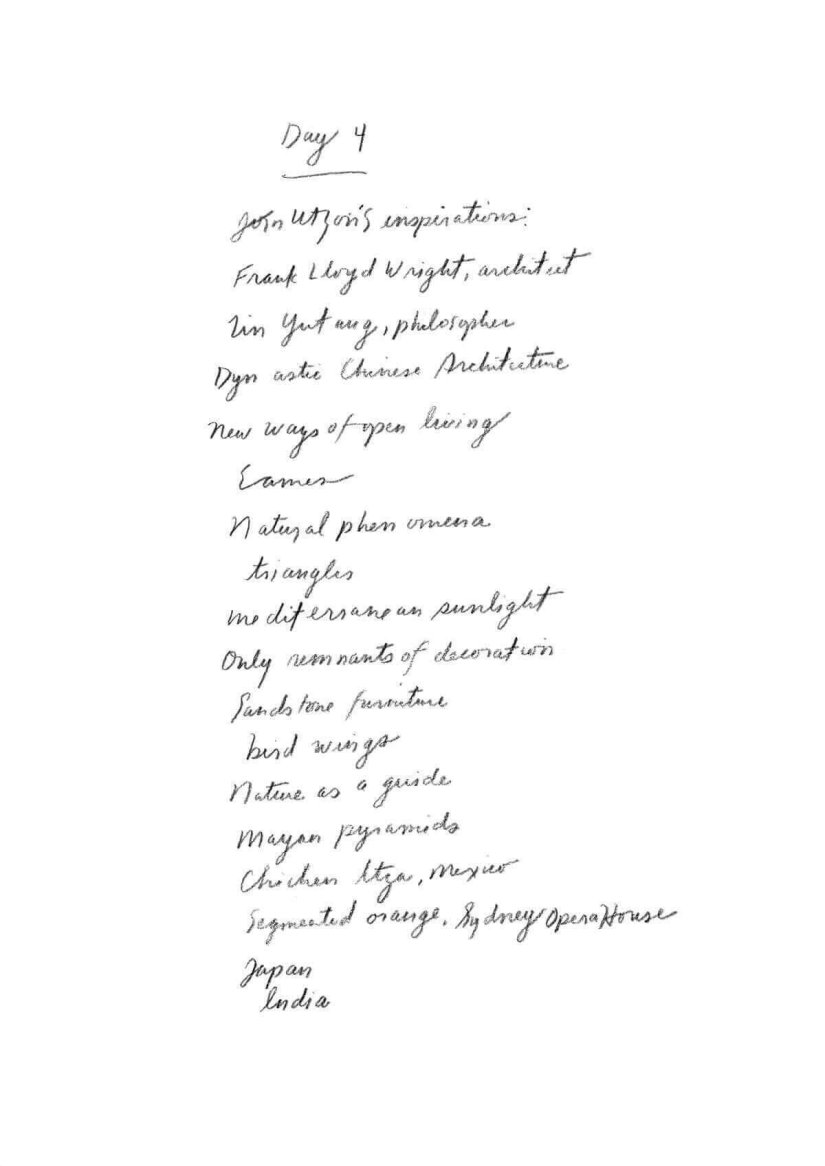 Day 4
Jørn Utzon's inspirations:
Frank Lloyd Wright, architect
Lin Yutang, philosopher
Dynastic Chinese Architecture
New ways of open living
Eames
Natural phenomena
triangles
mediterranean sunlight
Only remnants of decoration
Sandstone furniture
bird wings
Nature as a guide
Mayan pyramids
Chichen Itza, Mexico
Segmented orange, Sydney Opera House
Japan
India